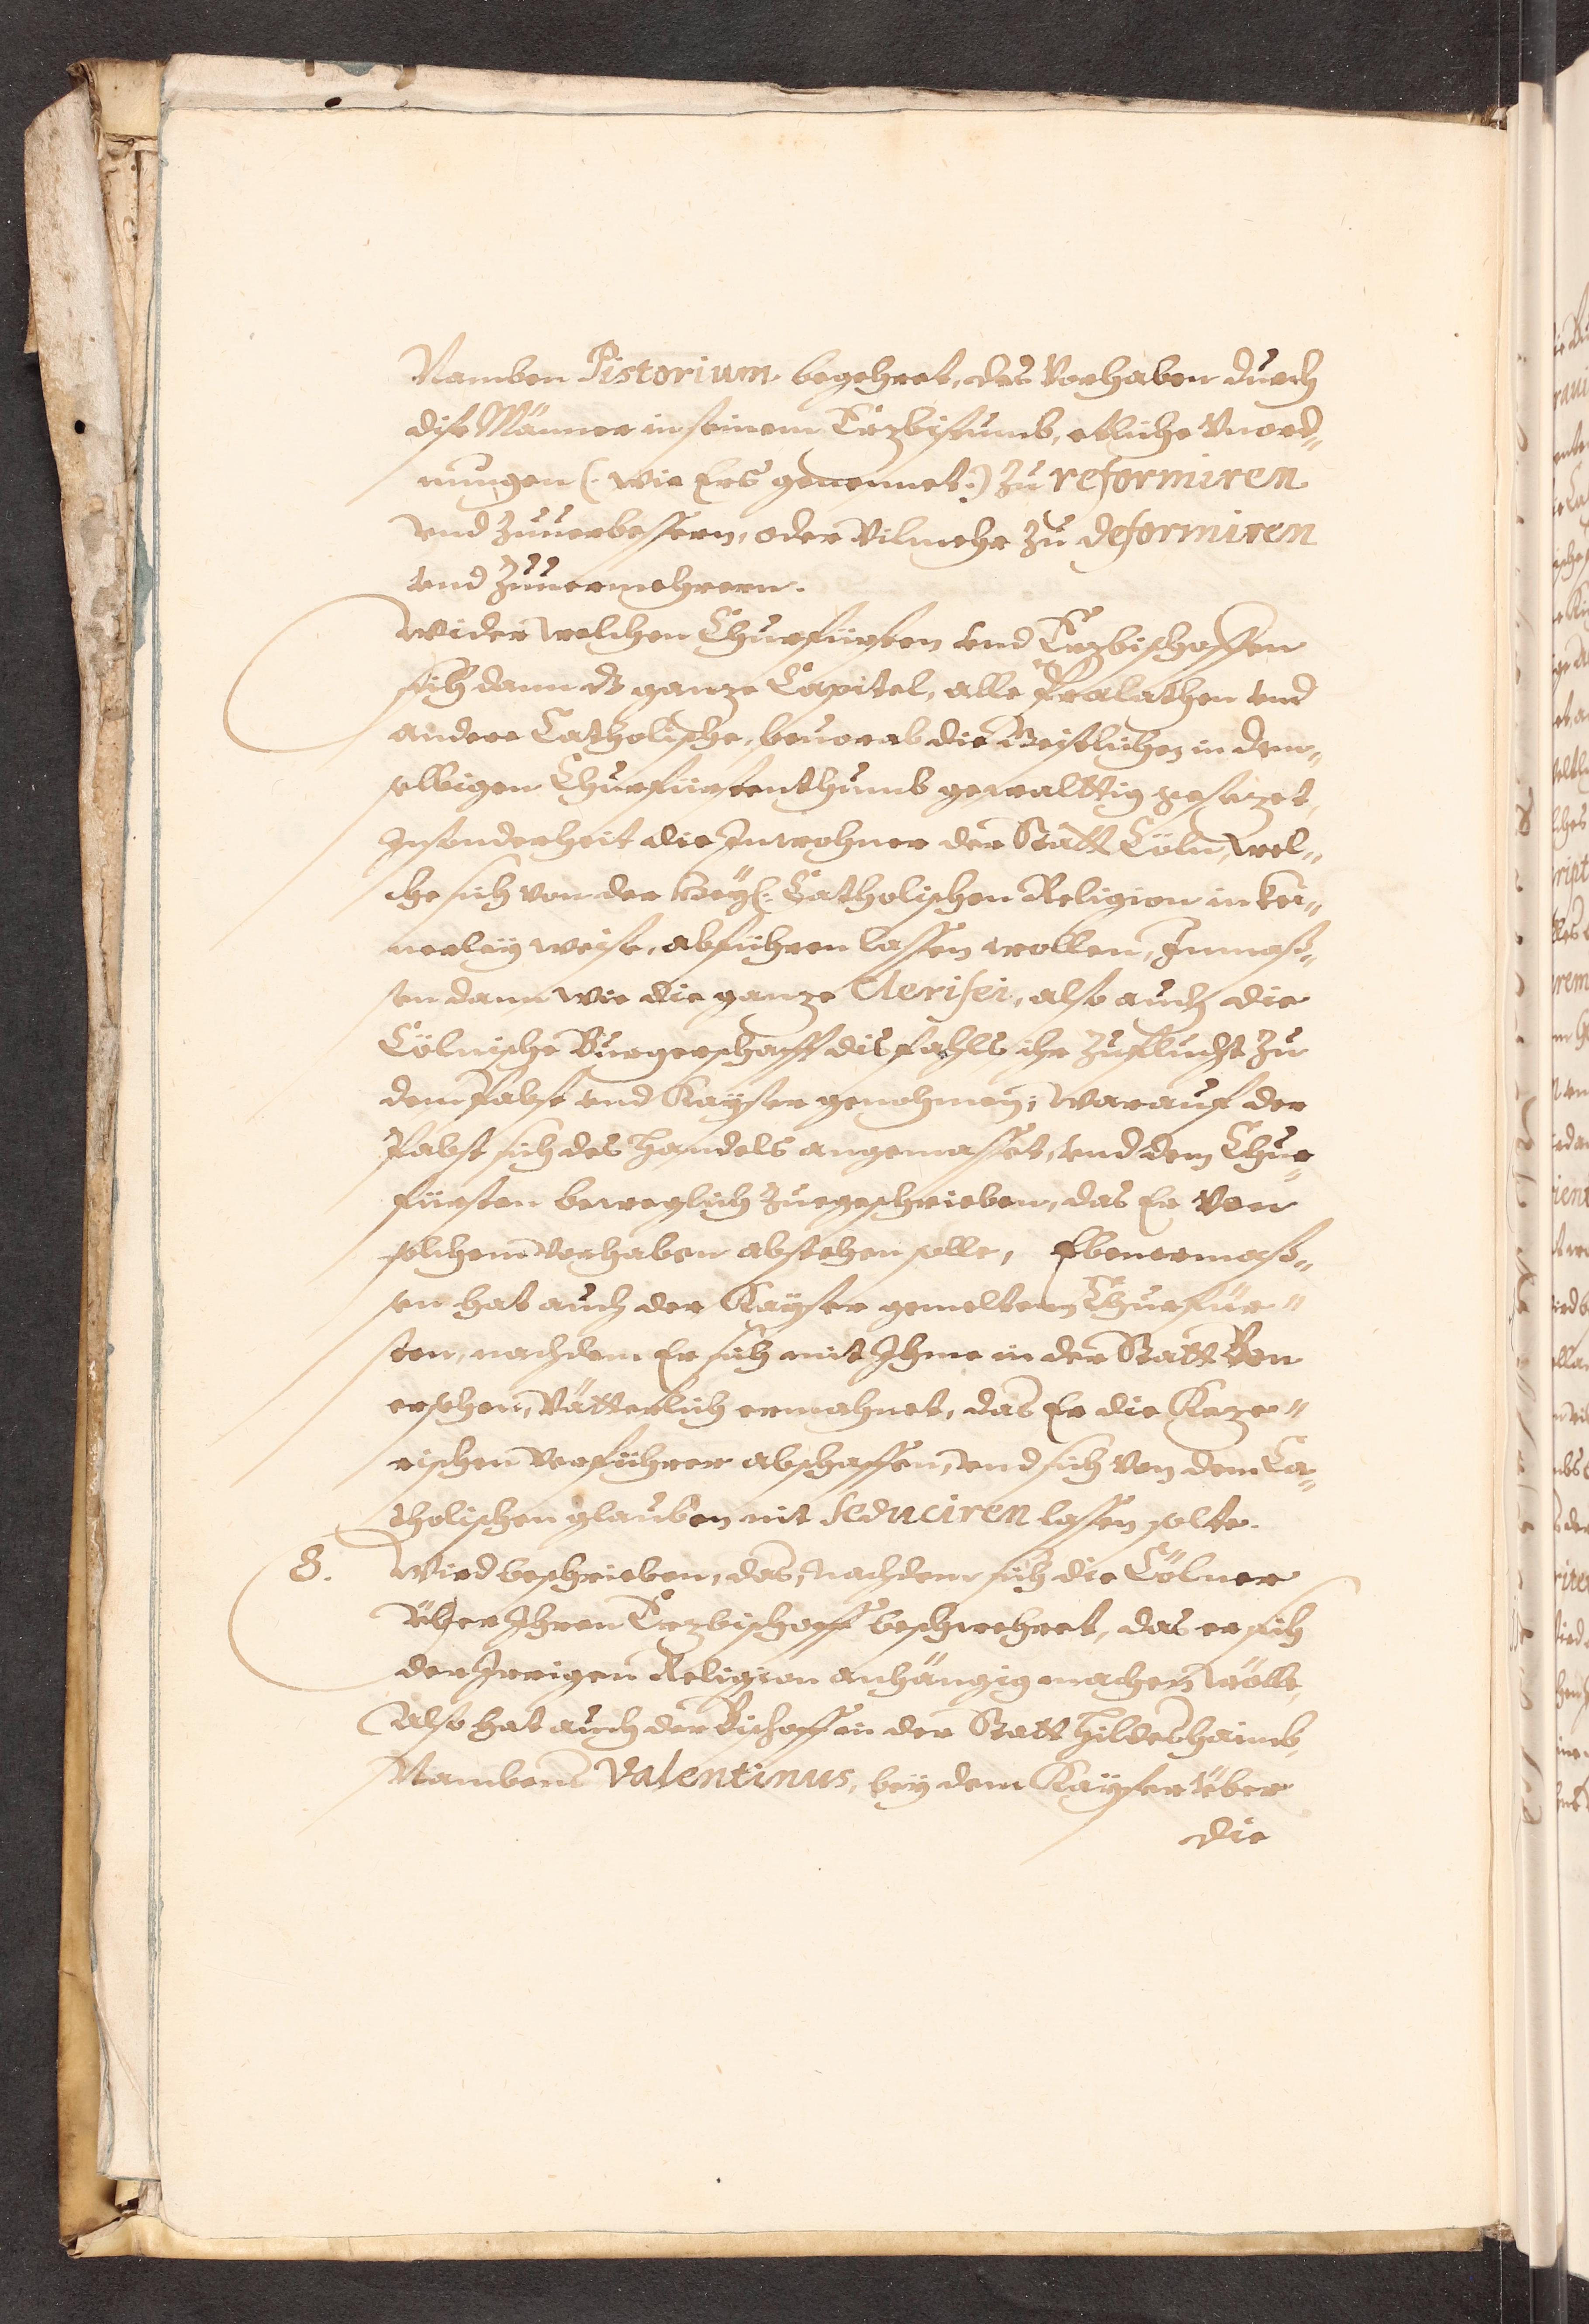 Namben Pistorium begehret, des Vorhaben durch
dise Männer in seinem Erzbistumb, etliche Vnord„
nungen (: wie Ers genennet :) zu reformiren
vnd zuuerbessern, oder Vilmehr zu deformiren
vnd zuuermehrern.
Wider welchen Churfürsten vnd Erzbischoffen
sich dann dz ganze Capitel, alle Prælathen vnd
andere Catholische, beuorab die Geistlichen in dem„
selbigen Churfürstenthumb gewalttig gesezet,
Insonderheit die Inwohner der Statt Cöln, wel„
che sich von der Heyl: Catholischen Religion in kei„
nerley weise, abführen lassen wollen, Inmass„
sen dann wie die ganze Clerisei, also auch die
Cölnische Burgerschafft disfahls ihr Zuflucht zu
dem Pabst vnd Kayser genohmen; Warauf der
Pabst sich des Handels angemasset, vnd dem Chur„
fürsten beweglich zuegeschrieben, das Er von
solchem Vorhaben abstehen solle, Ebenermass„
sen hat auch der Kayser gemeltem Churfür„
sten, nachdem Er sich mit Ihme in der Statt Bon
ersehen, Vätterlich ermahnet, das Er die Keze„
rischen Verführer abschaffen, vnd sich von dem Ca„
tholischen glauben nit seduciren lassen solte.
8. Wird beschrieben, das, nachdem sich die Cölner
Über Ihren Erzbischoff beschwehret, das er sich
der Irrigen Religion anhängig machen wölle,
Also hat auch der Bischoff in der Statt Hildeshaimb,
Nambens Valentinus, bey dem Kayser über
die